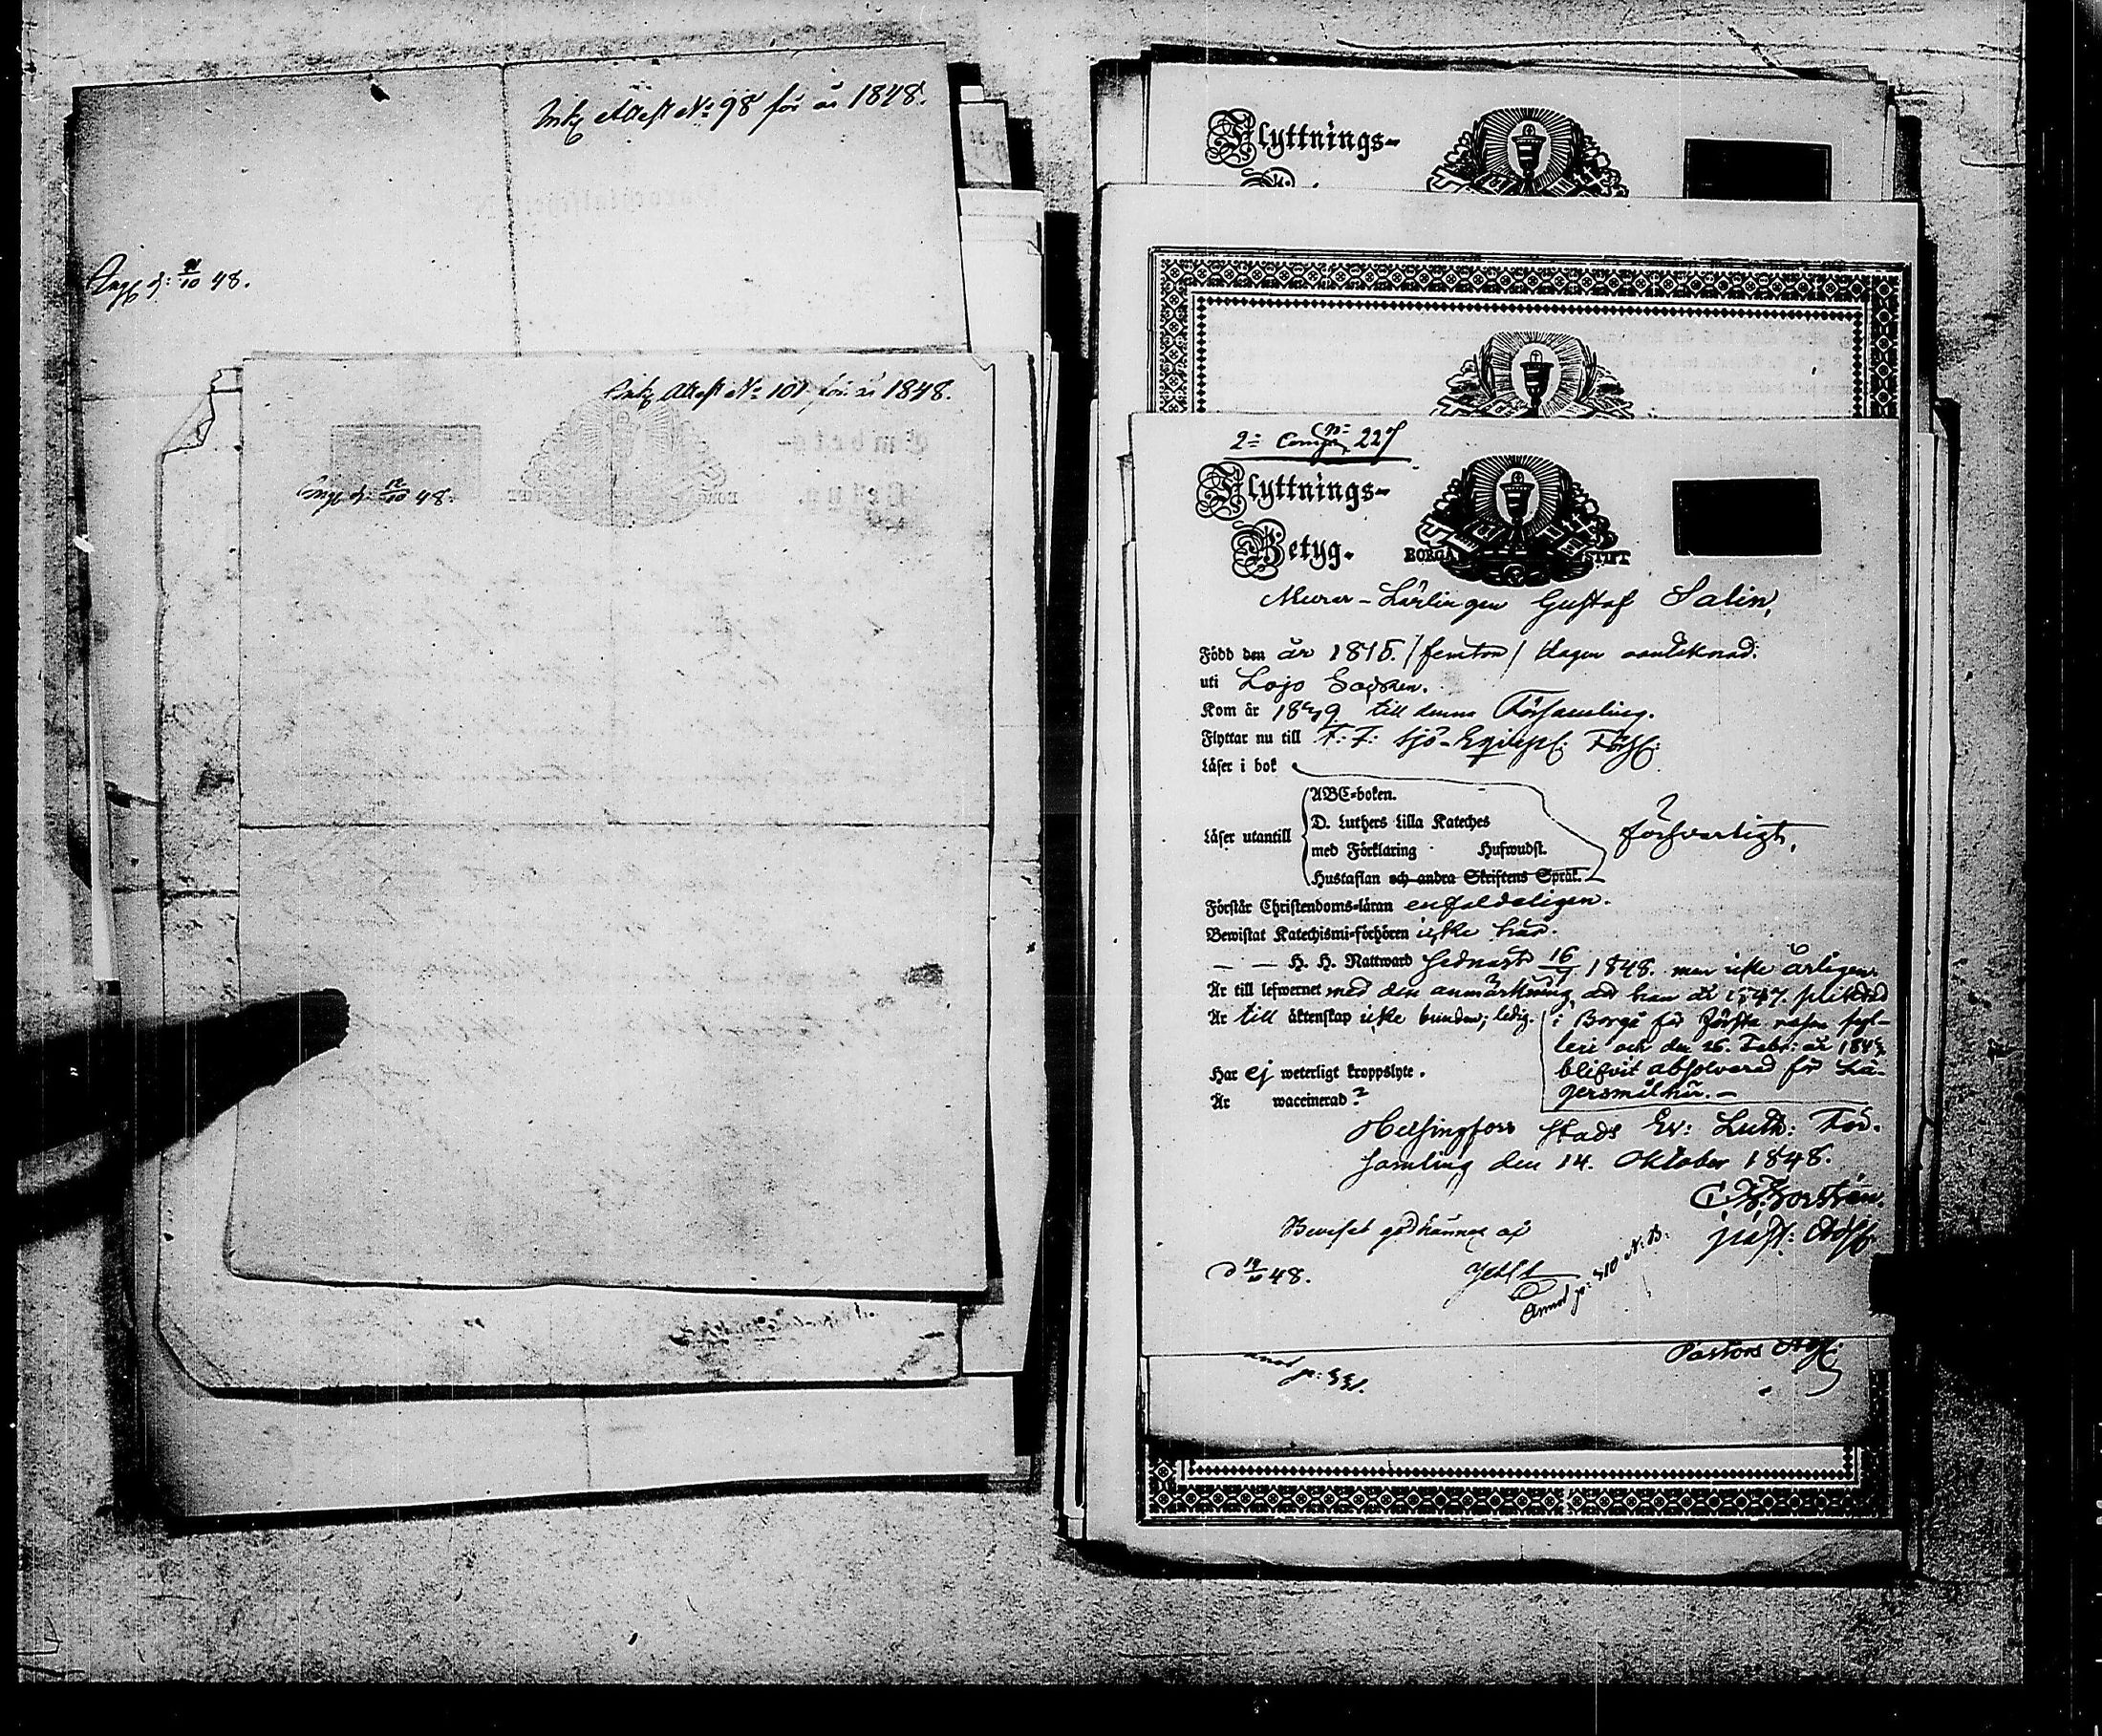 Ink. Attest No 98 för år 1848.
48.
Ink. Attest No 101 för år 1848.
48.
Flyttnings-
2:a Comp: 227
Flyttnings-
Betyg.
BORGÅ STIFT
Murar-Lärlingen Gustaf Salin,
Född den år 1815. /femton/ dagen oantecknad.
uti Lojo Socken.
Kom år till denna Församling.
Flyttar nu till F: F: Sjö-Equip: Förs:
Läser i bok
ABC-boken.
D. Luthers Lilla Kateches
Läser utantill
försvarligt,
med Förklaring Hufwudst.
Hustaflan och andra Skriftens Språk.
Förstår Christendoms-läran enfaldeligen.
Bewistat Katechismi-förhören icke här.
— — H. H. Nattward sednast 16/7 1848. men icke årligen.
Är till lefwernet med den anmärkning, att han år 1847. pliktad
Är till äktenskap icke bunden; ledig.
i Borgå för första resan fyl-
leri och den 26. Febr: år
blifvit absolverad för Lä-
gersmål här. —
Har ej weterligt kroppslyte.
Är waccinerad?
Helsingfors Stads Ev: Luth: För-
samling den 14. Oktober 1848.
Past: Adj:
Beviset godkännes af
48.
Annot p: 410 N. B.
Pastors Adj: